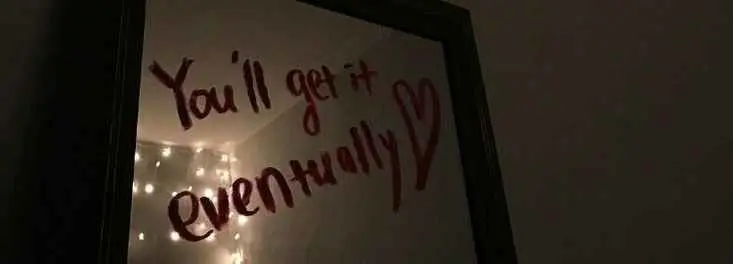 You'll get it
eventually♡